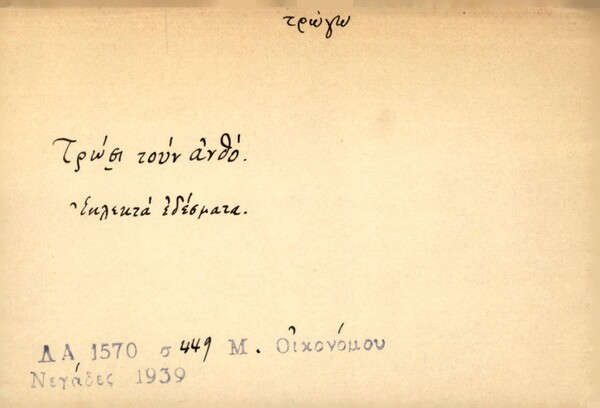 τρώγω
Τρώσι τούν ἀνθό.
Ἐκλεκτά ἐδέσματα.
ΔΑ 1570 σ 449 Μ. Οἰκονόμου
Νεγάδες 1939